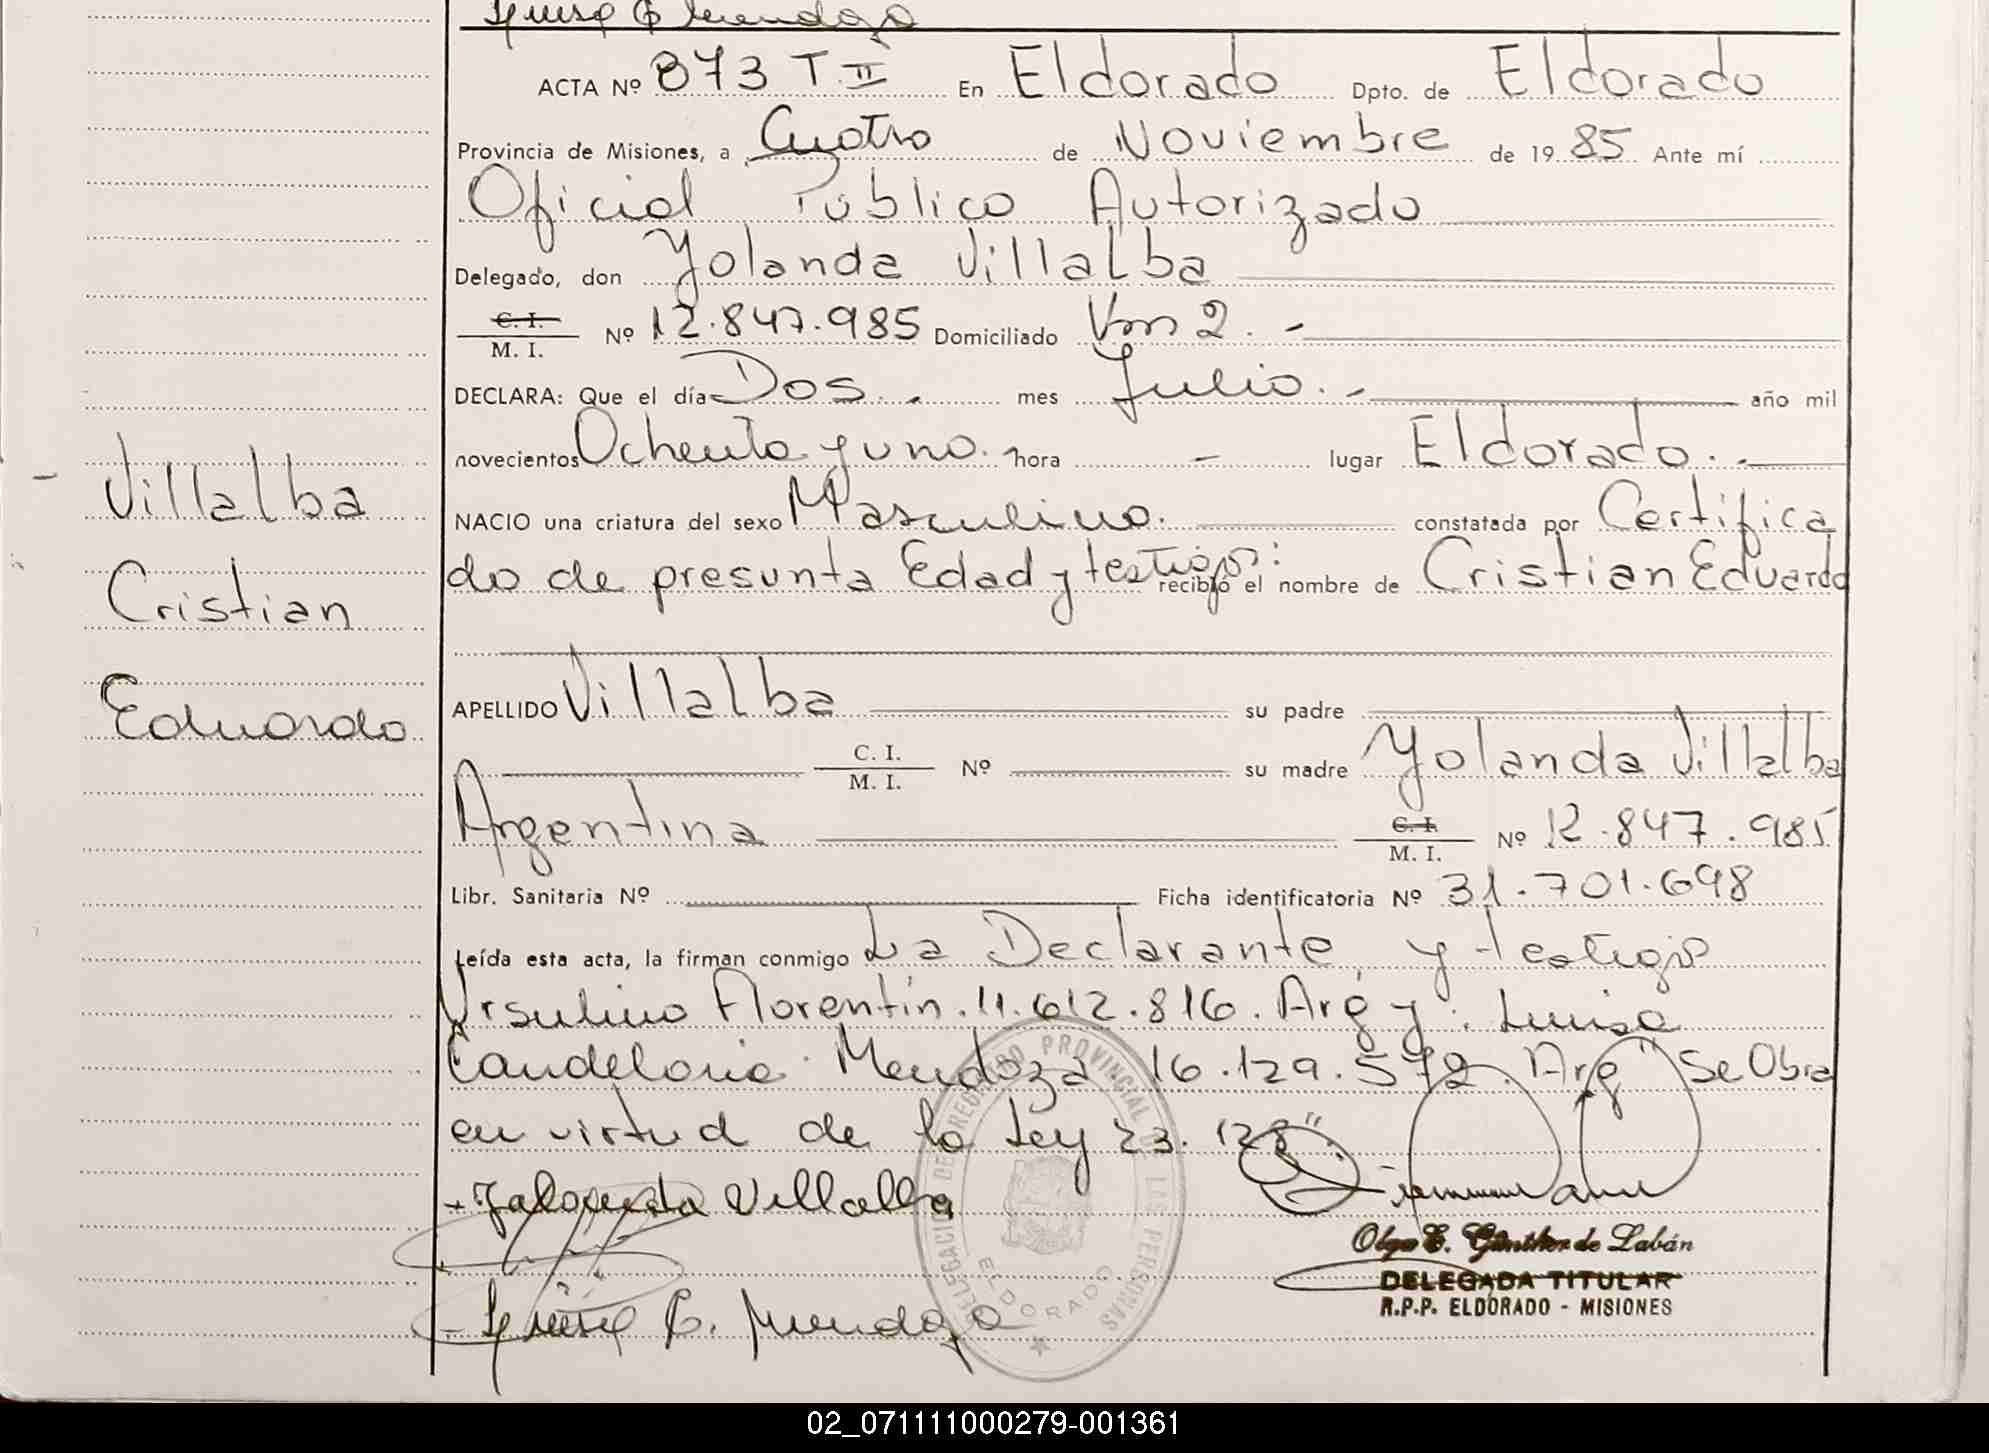 Luisa C Mendoza
ACTA Nº 873 T. II En Eldorado Dpto. de Eldorado
Provincia de Misiones, a Cuatro de Noviembre de 19 85 Ante mí
Oficial Público Autorizado
Delegado, don Yolanda Villalba
C. I.
M. I. Nº 12.847.985 Domiciliado Km 2. -
DECLARA: Que el día Dos. - mes Julio. - año mil
novecientos Ochenta y uno. hora - lugar Eldorado. -
NACIO una criatura del sexo Masculino. constatada por Certifica
do de presunta Edad y testigos: recibió el nombre de Cristian Eduardo
Villalba
Cristian
Eduardo
APELLIDO Villalba su padre
C. I.
M. I. Nº su madre Yolanda Villalba
Argentina C. I.
M. I. Nº 12.847.985
Libr. Sanitaria Nº Ficha identificatoria Nº 31.701.698
Leída esta acta, la firman conmigo La Declarante, y testigos
Ursulino Florentín. 11.612.816. Arg y. Luisa
Candelaria Mendoza 16.129.572. Arg "Se Obra
en virtud de la Ley 23.128".
- Yolanda Villalba
- Luisa C. Mendoza
DELEGACION DEL REGISTRO PROVINCIAL DE LAS PERSONAS
ELDORADO
Olga E. Günther de Labán
DELEGADA TITULAR
R.P.P. ELDORADO - MISIONES
02_071111000279-001361